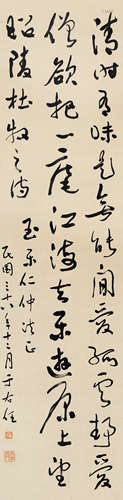 清时有味是无能闲爱孤云静爱
僧欲把一麾江海去乐游原上望
昭陵 杜牧之诗
玉乐仁仲法正
民国三十六年十二月 于右任